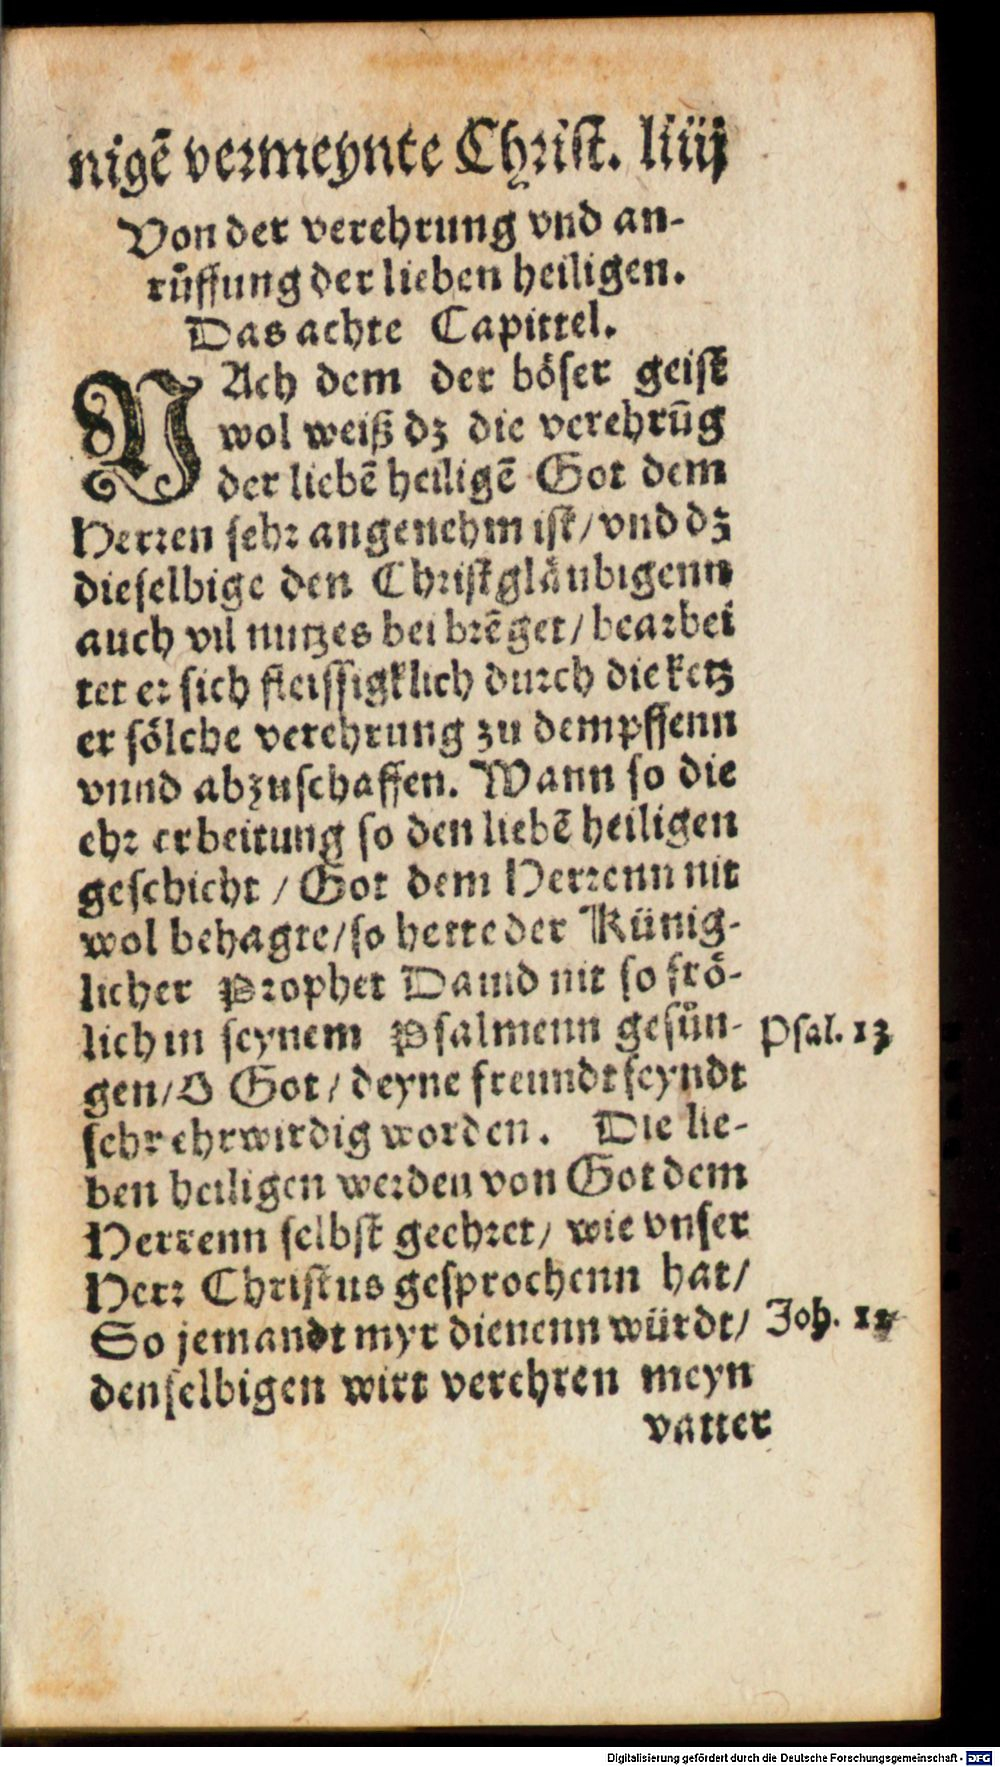 nigẽ vermeynte Christ. liiij
Von der verehrung vnd an-
růffung der lieben heiligen.
Das achte Capittel.
NAch dem der böser geist
wol weiß dz die verehrũg
der liebẽ heiligẽ Got dem
Herren sehr angenehm ist/ vnd dz
dieselbige den Christgläubigenn
auch vil nutzes bei brẽget/ bearbei
tet er sich fleissigklich durch die ketz
er sölche verehrung zu dempffenn
vnnd abzuschaffen. Wann so die
ehr erbeitung so den liebẽ heiligen
geschicht / Got dem Herrenn nit
wol behagte/ so hette der Künig-
licher Prophet Dauid nit so frö-
lich in seynem Psalmenn gesün- Psal. 13
gen/ O Got / deyne freundt seyndt
sehr ehrwirdig worden. Die lie-
ben heiligen werden von Got dem
Herrenn selbst geehret/ wie vnser
Herr Christus gesprochenn hat/
So jemandt myr dienenn würdt/ Joh.
denselbigen wirt verehren meyn
vatter
Digitalisierung gefördert durch die Deutsche Forschungsgemeinschaft - DFG